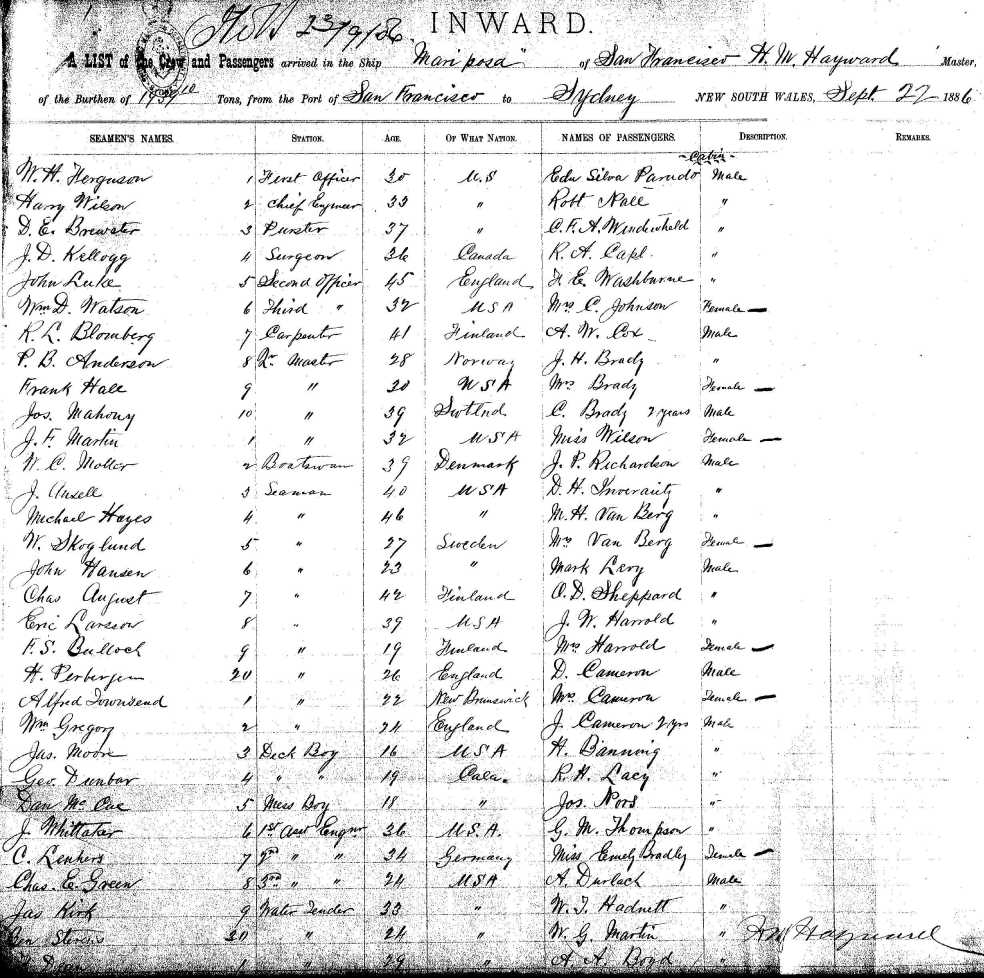 INWARD.
23/9/86
A LIST of the Crew and Passengers arrived in the Ship "Mariposa" of San Francisco H. M. Hayward Master,
of the Burthen of 1939 Tons, from the Port of San Francisco to Sydney NEW SOUTH WALES, Sept. 22 1886
SEAMEN'S NAMES. STATION. AGE. OF WHAT NATION. NAMES OF PASSENGERS. DESCRIPTION. REMARKS.
Cabin
W. H. Ferguson 1 First Officer 30 U.S Edw Silva Parudo Male
Harry Wilson 2 Chief Engineer 33 " Robt Nall "
D. E. Brewster 3 Purser 37 " C. F. A. "
J. D. Kellogg 4 Surgeon 36 Canada R. A. Capl. "
John Luke 5 Second Officer 45 England F. E. Washburne "
Wm D. Watson 6 Third " 32 USA Mrs C. Johnson Female —
R. L. Blomberg 7 Carpenter 41 Finland A. W. Cox Male
P. B. Anderson 8 Qr Master 28 Norway J. H. Brady "
Frank Hall 9 " 30 USA Mrs Brady Female —
Jos. Mahony 10 " 39 Scotlnd C. Brady 2 years Male
J. F. Martin 1 " 32 USA Miss Wilson Female —
W. C. Moller 2 Boatswan 39 Denmark J. P. Richardson Male
J. Ansell 3 Seaman 40 USA D. H. Inverarity "
Michael Hayes 4 " 46 " M. H. Van Berg "
W. Skoglund 5 " 27 Sweden Mrs Van Berg Female —
John Hansen 6 " 23 " Mark Levy Male
Chas August 7 " 42 Finland O. D. Sheppard "
Eric Larsson 8 " 39 USA J. W. Harrold "
F. S. Bulloch 9 " 19 Finland Mrs Harrold Female —
H. Perbergen 20 " 26 England D. Cameron Male
Alfred Townsend 1 " 22 New Brunswick Mrs Cameron Female —
Wm Gregory 2 " 24 England J. Cameron 2 yrs Male
Jas. Moore 3 Deck Boy 16 USA H. Banning "
Geo. Dunbar 4 " " 19 Cala. R. H. Lacy "
Dan Mc Cue 5 Mess Boy 18 " Jos. Nors "
J. Whittaker 6 1st Asst Engnr 36 U.S.A. G. M. Thompson "
C. Lenhers 7 2nd " " 34 Germany Miss Emely Bradley Female —
Chas. E. Green 8 3rd " " 24 USA A. Durlach Male
Jas Kirk 9 Water Tender 33 " W. J. Hadnett "
Ben Stevens 30 " 24 " W. G. Martin " HM Hayward
1 " 29 " A. A. Boyd "